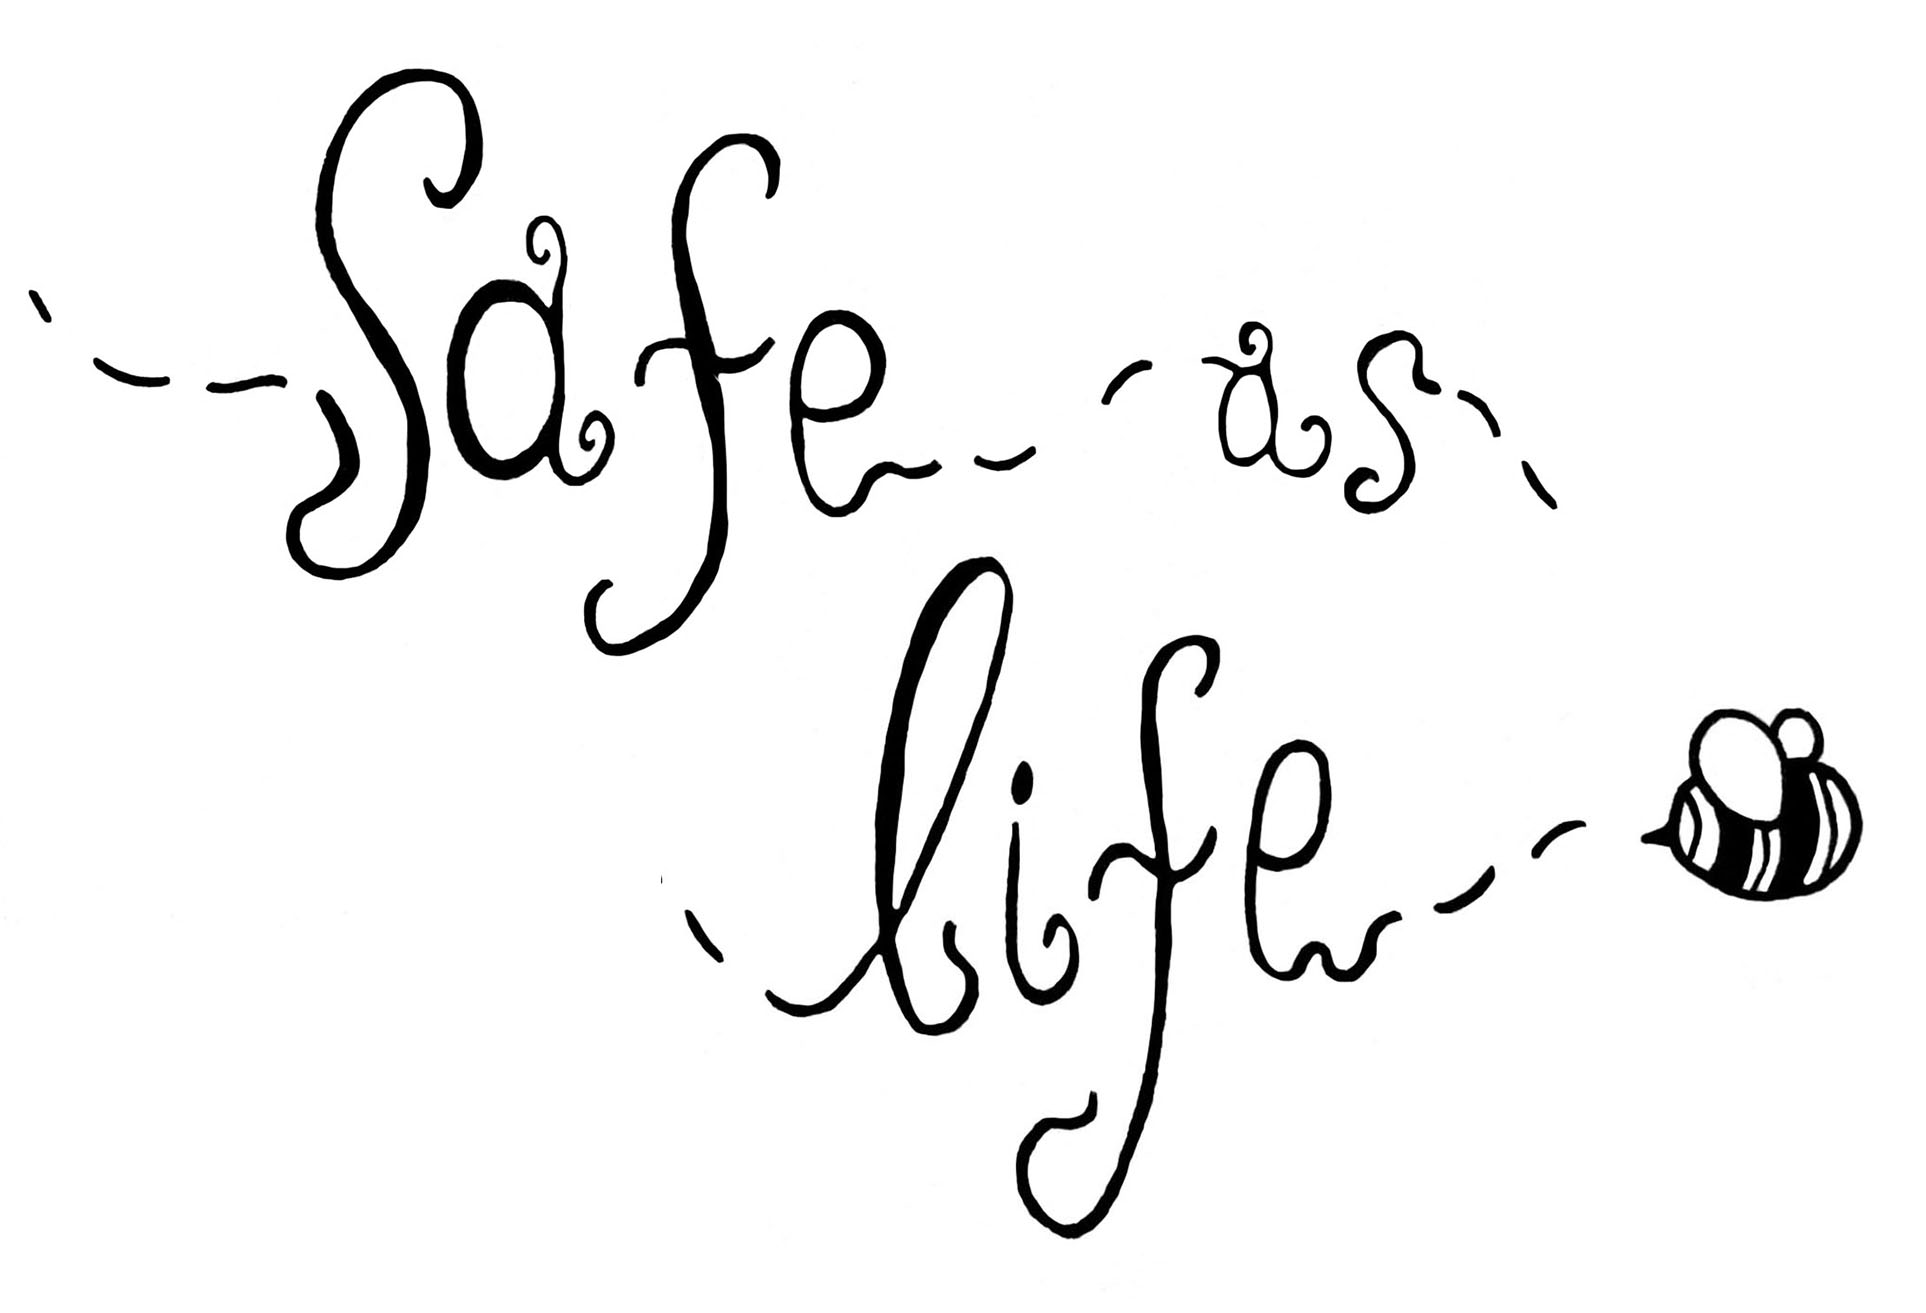 Safe as
life